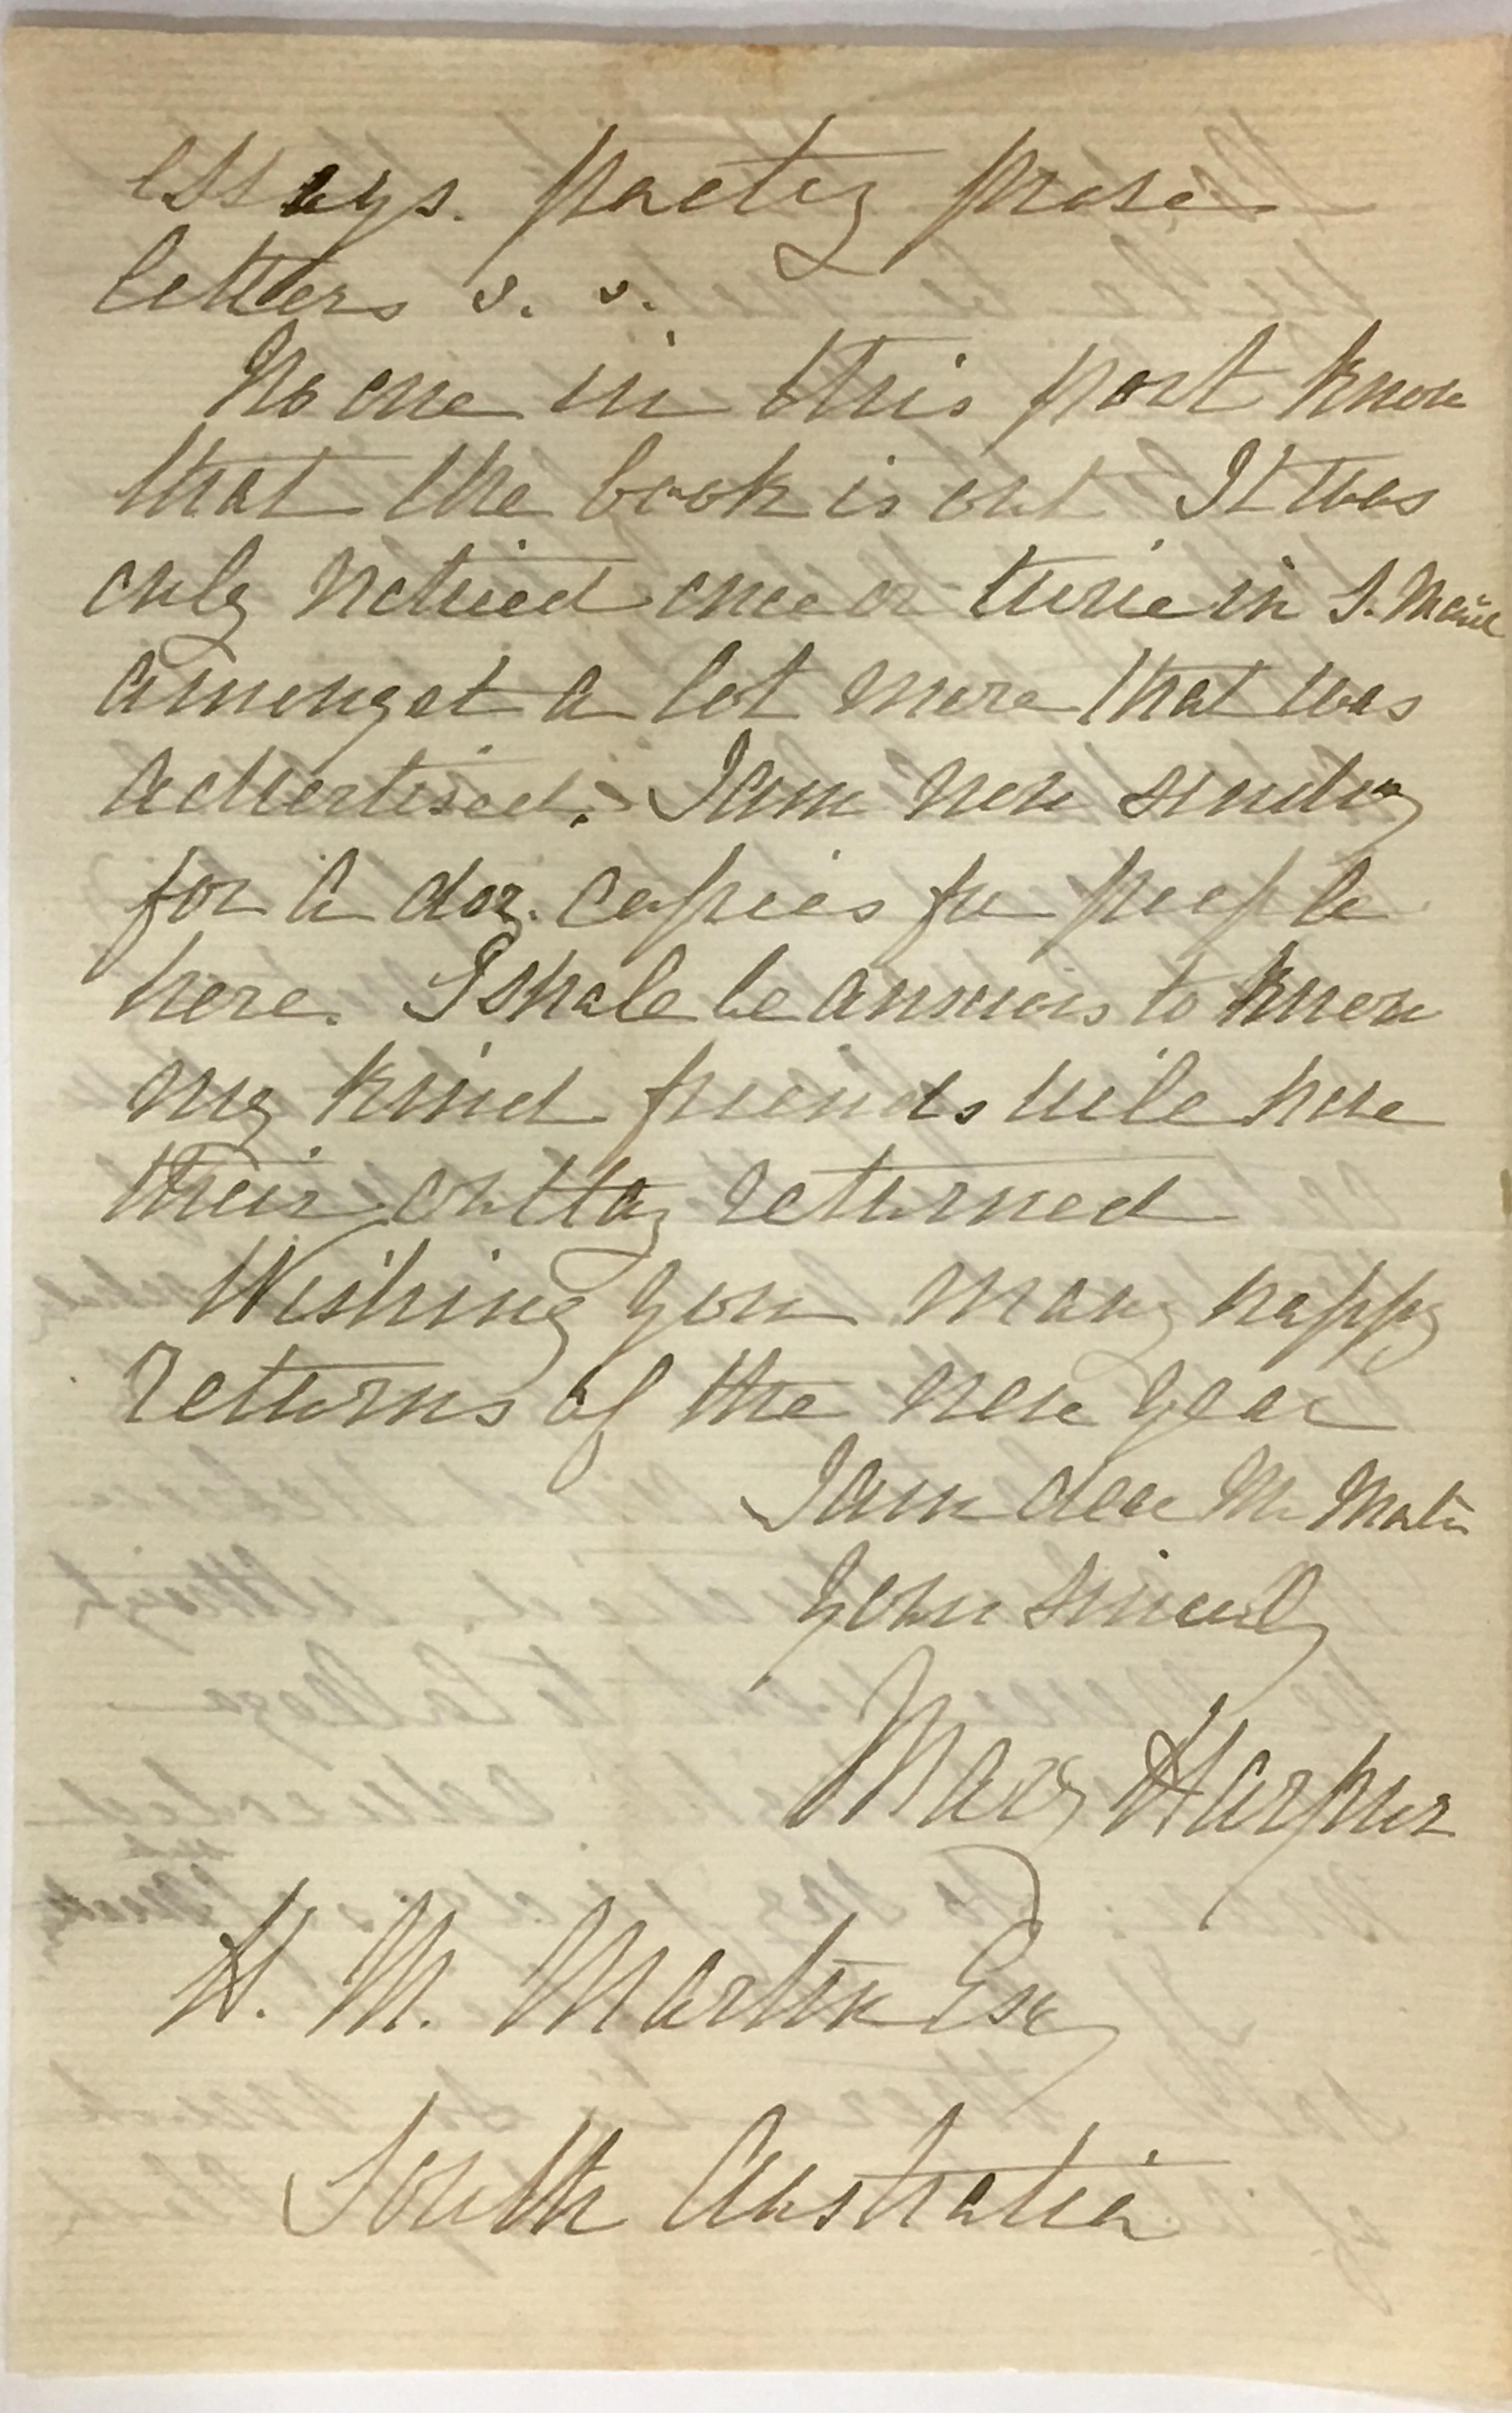 essays. poetry prose
letters &. &.
No one in this part know
that the book is out It was
only noticed once or twice in S. Mail
amongst a lot more that was
advertised. I am now sending
for a doz. copies for people
here. I shall be anxious to know
my kind friends will have
their outlay returned
Wishing you many happy
returns of the new year
I am dear Mr Martin
Yours sincerely
Mary Harpur
H. M. Martin Esq
South Australia